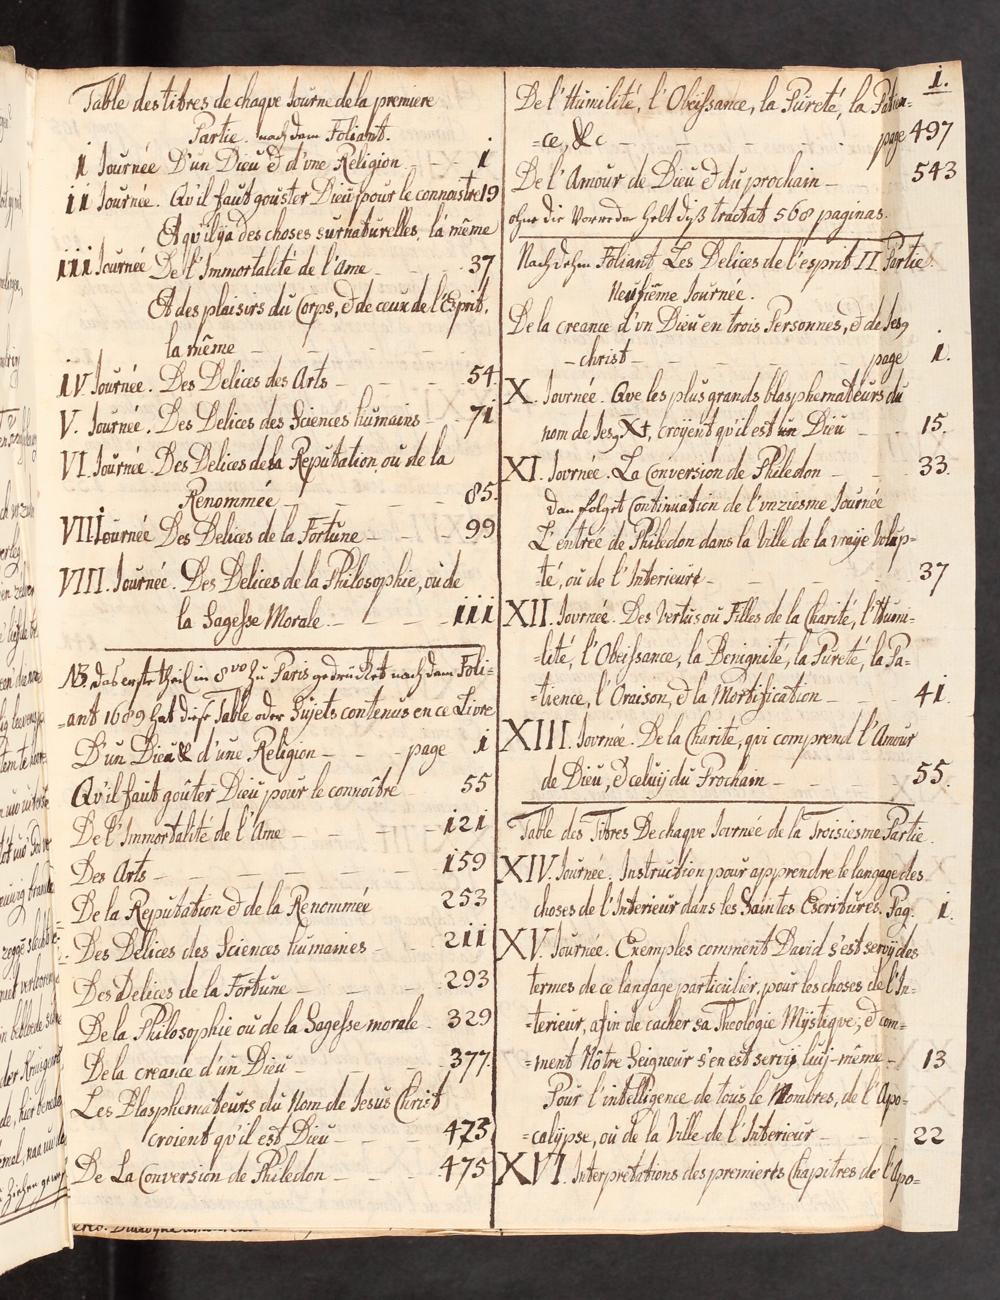 1.
Table des titres de chaque Journe de la premiere
Partie. nach dem Foliant.
i Journée D'un Dieu & d'vne Religion — i
ii Journée. Qu'il faut gouster Dieu pour le connoistre 19
Et qu'il ÿ a des choses surnaturelles, la même
iii Journée De l'Immortalité de l'Ame — 37
Et des plaisirs du Corps, & de ceux de l'Esprit,
la même — — — —
iV. Journée. Des Delices des Arts — — — 54
V. Journée. Des Delices des Sciences humains — 71
VI. Journée. Des Delices de la Reputation, ou de la
Renommée — — — — 85.
VII. Journée Des Delices de la Fortune — — — 99
VIII. Journée. Des Delices de la Philosophie, ou de
la Sagesse Morale. — — — — iii
NB. Das erste theil in 8vo zu Paris gedrücket nach dem Foli-
=ant 1689 hat diese Table oder Sujets contenus en ce Livre
D'un Dieu & d'une Religion — — page i
Qu'il faut goûter Dieu pour le connoître — 55
De l'Immortalité de l'Ame — — — 121
Des Arts — — — — — 159
De la Reputation & de la Renommée 253
Des Delices des Sciences humaines — — 211
Des Delices de la Fortune — — — 293
De la Philosophie ou de la Sagesse morale — 329
De la creance d'un Dieu — — — — 377.
Les Blasphemateurs du Nom de Jesus Christ
croient qu'il est Dieu — — — — 473
De La Conversion de Philedon — — — 475
De l'Humilité, l'Obeissance, la Pureté, la Patien-
=ce, &c — — — page 497
De l'Amour de Dieu & du prochain — 543
ohne die Vorrede helt diß tractat 568 paginas.
Nach dehm Foliant Les Delices de l'esprit II Partie.
Neufiême Journée.
De la creance d'vn Dieu en trois Personnes, & de Jesq
— christ — — — — page 1.
X. Journée. Que les plus grands blasphemateurs du
nom de Jesq Xt, croyent qu'il est un Dieu — — 15.
XI. Journée. La Conversion de Philedon — — 33.
dan folget Continuation de l'vnziesme Journée
L'entrée de Philedon dans la Ville de la vraÿe Volup-
=té, ou de l'Interieure — — — — 37
XII. Journée. Des Vertus ou Filles de la Charité, l'Humi-
=lité, l'Obeissance, la Benignité, la Pureté, la Pa-
=tience, l'Oraison, & la Mortification — — — 41.
XIII. Journée. De la Charité, qui comprend l'Amour
de Dieu, & celuÿ du Prochain — — — 55.
Table des Titres De chaque Journée de la Troisiesme Partie.
XIV. Journée. Instruction pour apprendre le langage des
choses de l'Interieur dans les Saintes Escritures. Pag. 1.
XV. Journée. Exemples comment David s'est servÿ des
termes de ce langage particulier, pour les choses de l'In-
=terieur, afin de cacher sa Theologie Mÿstique, & com-
=ment Nôtre Seigneur s'en est servÿ luÿ-même — 13
Pour l'intelligence de tous le Nombres, de l'Apo-
=calÿpse, ou de la Ville de l'Interieur — — — 22
XVI. Interpretations des premiers Chapitres de l'Apo=